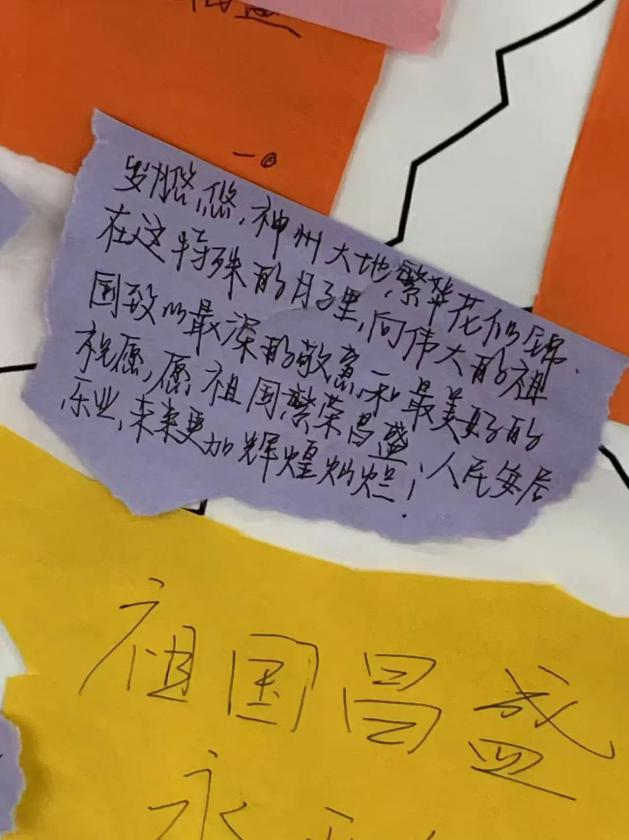 岁月悠悠,神州大地,繁华花似锦.
在这特殊的月子里,向伟大的祖
国致以最深的敬意和最美好的
祝愿,愿祖国繁荣昌盛,人民安居
乐业,未来更加辉煌灿烂!
祖国昌盛
永